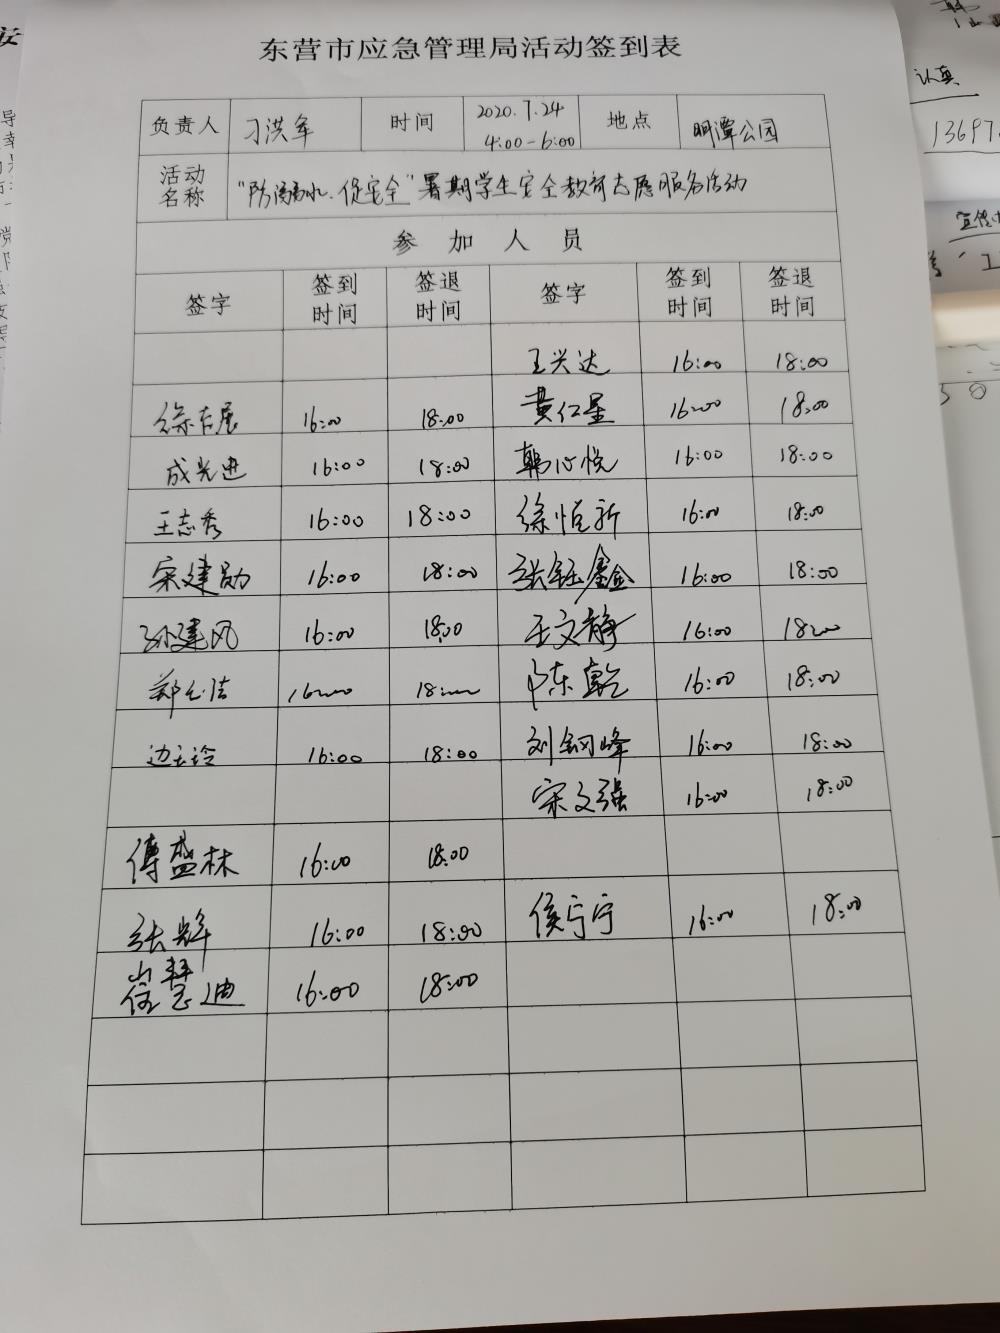 东营市应急管理局活动签到表
负责人 刁洪军 时间 2020.7.24 4:00-6:00 地点 明潭公园
活动名称 "防溺水、促安全"暑期学生安全教育志愿服务活动
参加人员
签字 签到时间 签退时间 签字 签到时间 签退时间
王兴达 16:00 18:00
徐吉展 16:00 18:00 黄仁星 16:00 18:00
成光进 16:00 18:00 韩心悦 16:00 18:00
王志秀 16:00 18:00 徐恒新 16:00 18:00
宋建勋 16:00 18:00 张钰鑫 16:00 18:00
孙建风 16:00 18:00 王文静 16:00 18:00
16:00 18:00 陈乾 16:00 18:00
边玉玲 16:00 18:00 刘钢峰 16:00 18:00
宋文强 16:00 18:00
傅盛林 16:00 18:00
张辉 16:00 18:00 侯宁宁 16:00 18:00
崔慧迪 16:00 18:00
安
认真
13697
宣传